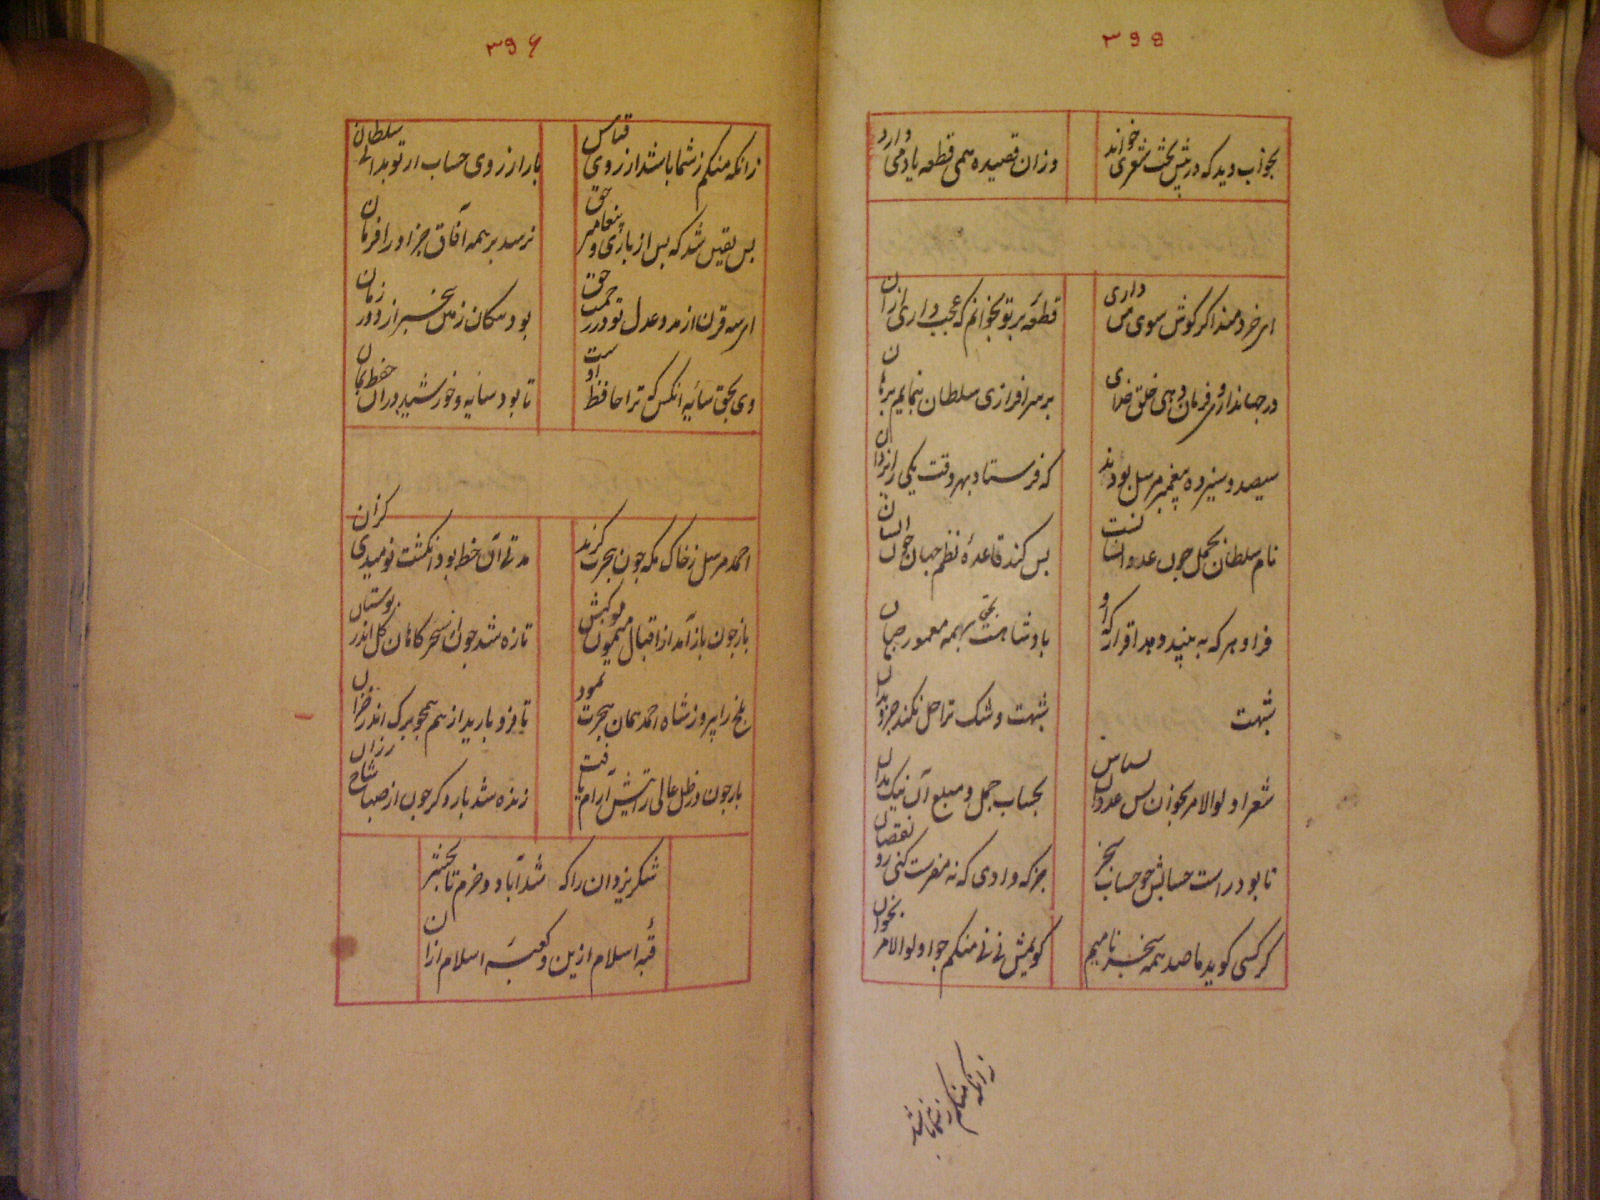 ۳۹۵
بخواب دید که در پیش تخت شعری خواند
وزان قصیده همی قطعه یاد می دارد
ای خردمند اگر گوش سوی من داری
قطعه بر تو بخوانم که عجب داری ازان
در جهانداری و فرمان دهی خلق خدای
بر سرافرازی سلطان بنمایم برهان
سیصد و سیزده پیغمبر مرسل بودند
که فرستاد بهر وقت یکی را یزدان
نام سلطان بجمل چون عدد ایشانست
بس کند قاعدهٔ نظم جهان چون ایشان
فر او هر که به بیند دهد اقرار که او
پادشاهست بحق بر همه معمور جهان
شبهت
شبهت و شک ترا حل نکند جز
شعر اولوالامر بخوان پس عدد آن
بحساب جمل و مبلغ آن نیک بدان
تا بود راست حسابش چو حساب سنجر
جز که وادی که نه معرست کنی رو نقصان
گر کسی گوید ما صد همه سنجر نامیم
گویمش نی نی منکم چو اولوالامر بخوان
زانکه منکم ز شما باشد
۳۹۶
زانکه منکم ز شما باشد از روی قیاس
باز از روی حساب ار تو بدانی سلطان
پس یقین شد که پس از باری و پیغامبر حق
نرسد بر همه آفاق جز او را فرمان
ای سه قرن از مدد عدل تو در رحمت حق
بوده سکان زمین بیخبر از دور زمان
وی بحق سایهٔ آنکس که ترا حافظ اوست
تا بود سایه و خورشید در آن حفظ بمان
احمد مرسل ز خاک مکه چون هجرت گزید
مدتی آن خطه بود انگشت نومیدی گزان
باز چون باز آمد از اقبال میمون موکبش
تازه شد چون از سحرگاهان گل اندر بوستان
بلخ را پیروز شاه احمد همان هجرت نمود
تا فرو بارید از هم همچو برگ اندر خزان
باز چون در ظل عالی رایتش آرام یافت
زنده شد بار دگر چون از صبا شاخ رزان
شکر یزدان را که شد آباد و خرم تا بحشر
قبهٔ اسلام ازین و کعبهٔ اسلام ازان